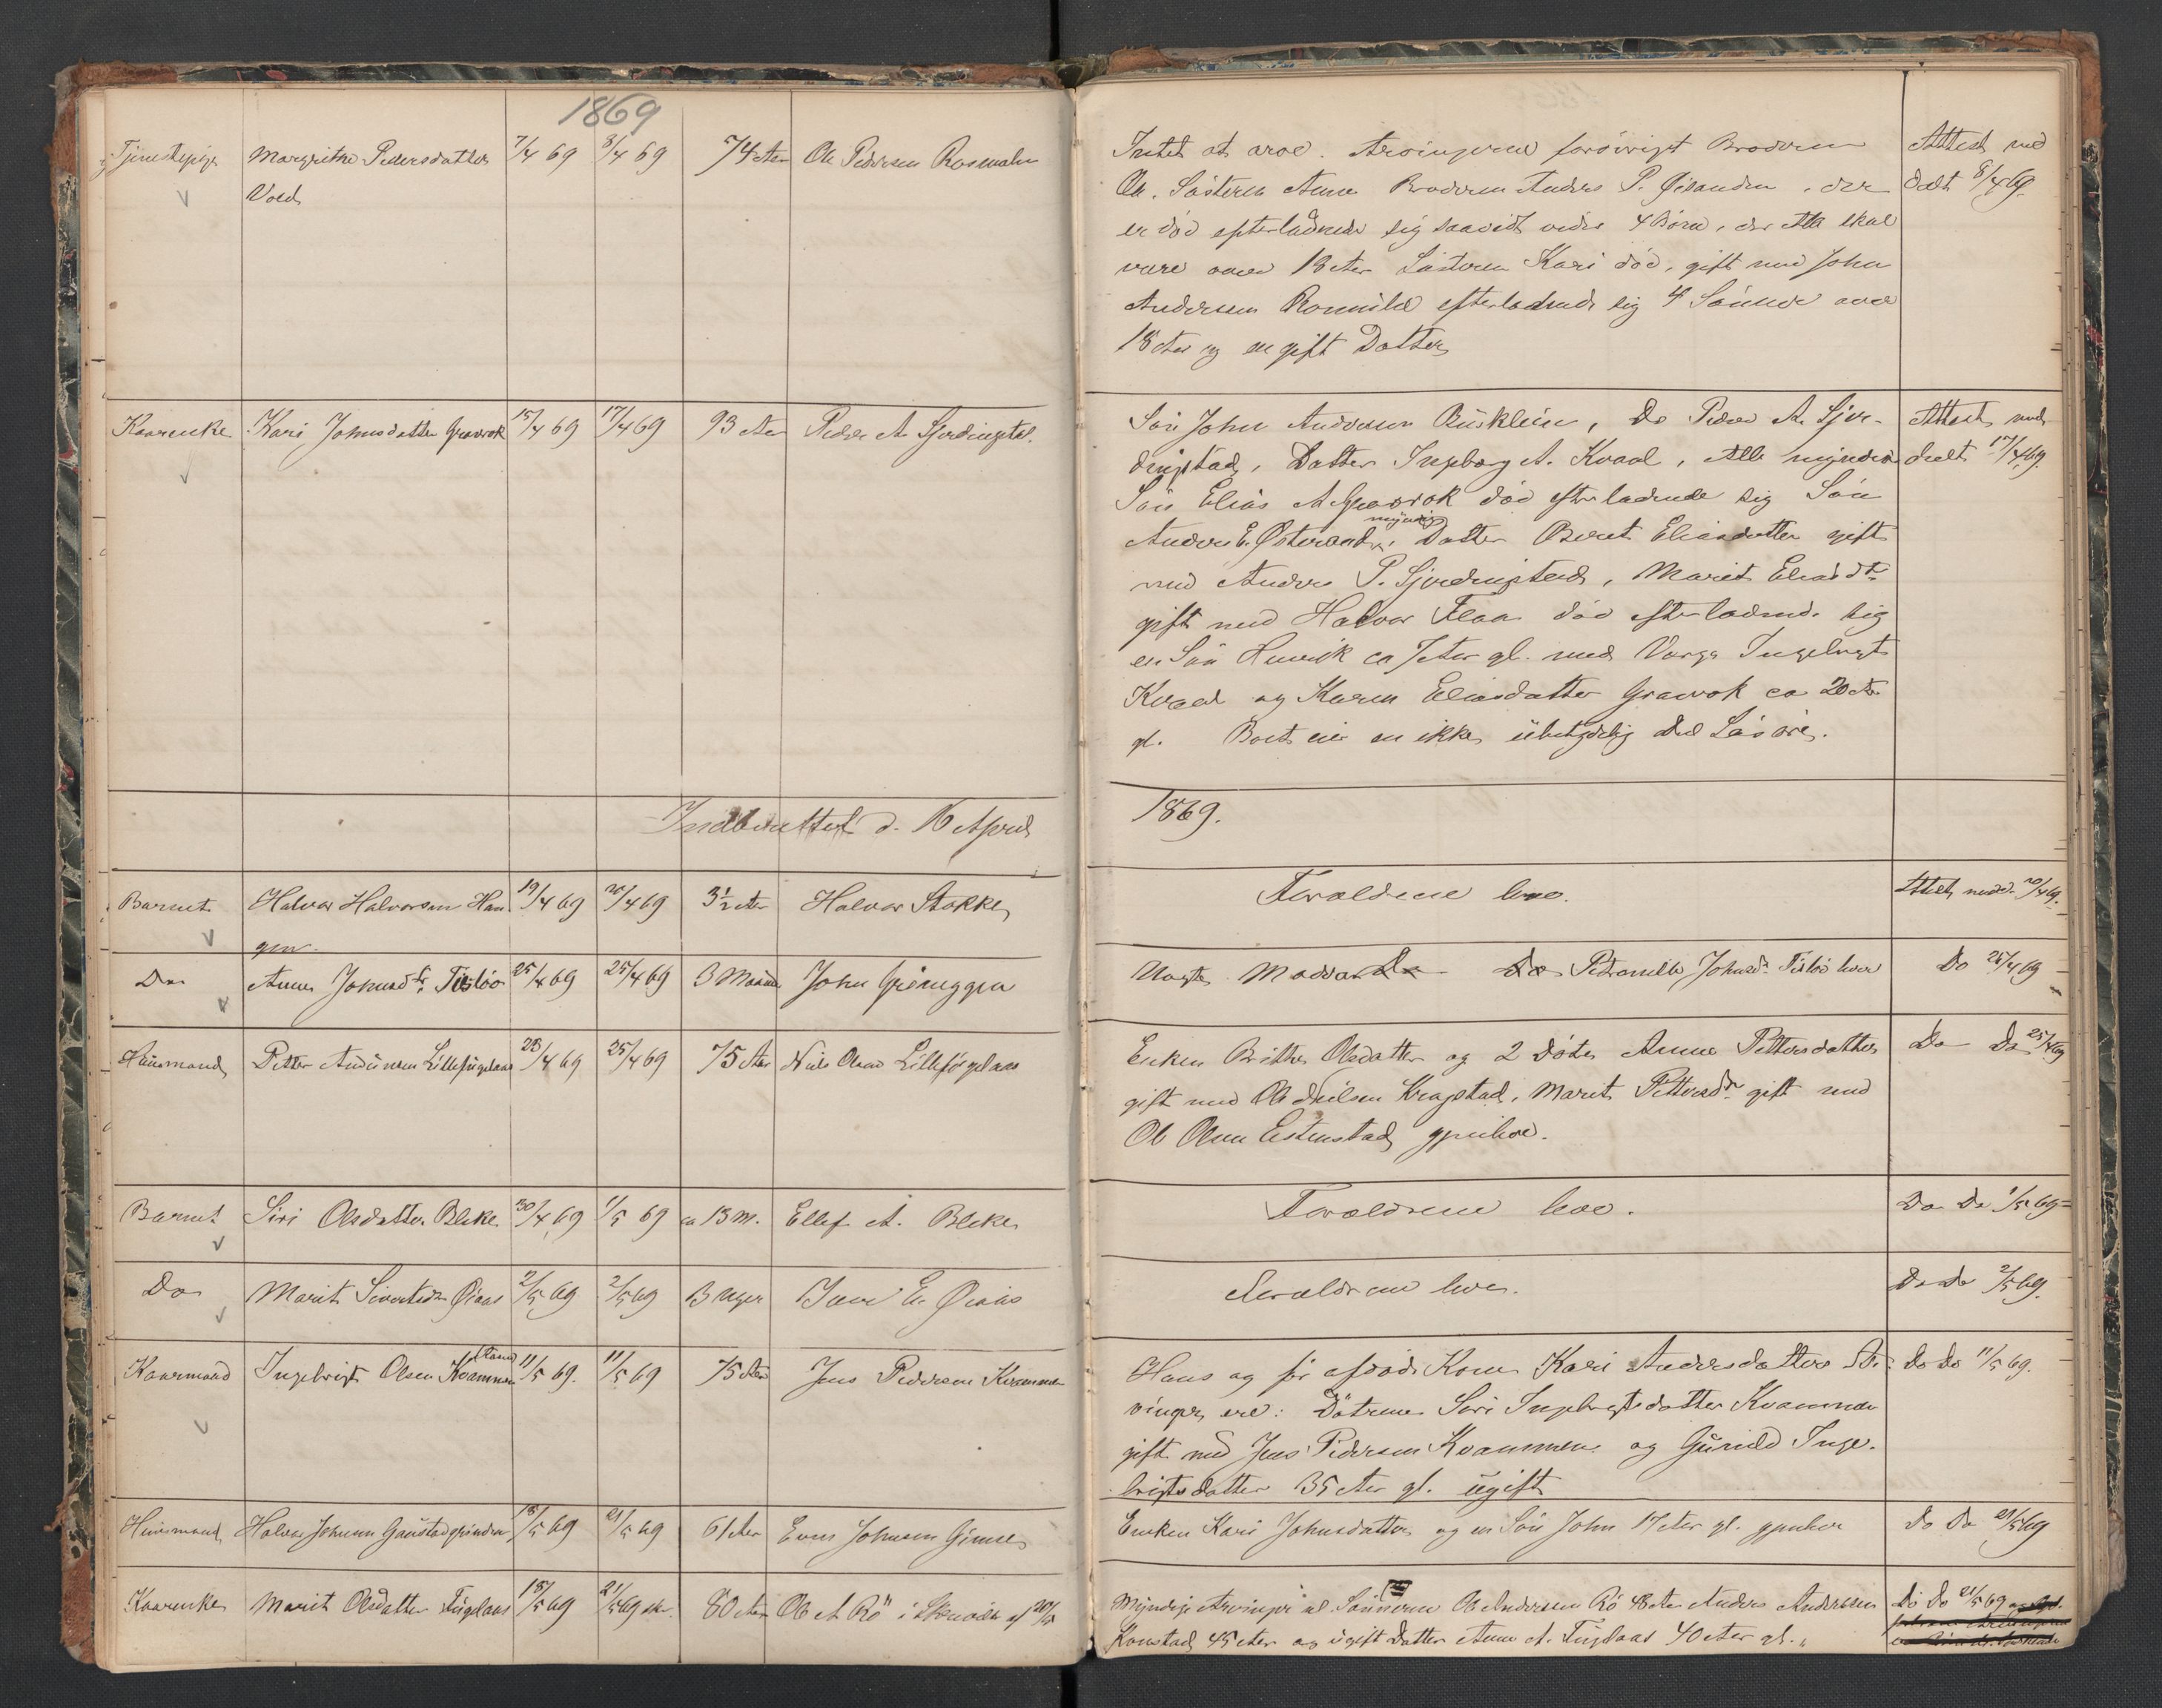 1869
Tjenestepige Margrithe Pedersdatter 7/4 69 8/4 69 74 Aar Ole Pedersen Rosmalen
Vold
Intet at arve. Arvingerne forövrigt Broderen
Ole. Søsteren Anne Broderen Anders P. Øisanden . der
er död efterladende sig saavidt vides 4 Börn, der Alle skal
være over 18 Aar Søsteren Kari död, gift med John
Andersen efterladende sig 4 Sønner over
18 Aar og en gift Datter
Attest med
delt 8/4 69.
Kaarenke Kari Johnsdatter Gravrok 15/4 69 17/4 69 93 Aar Peder A Gjerdingstad.
Sön John Andersen Busklein, Do Peder A. Gjer-
dingstad, Datter Ingeborg A. Kvaal, Alle myndige
Sön Elias A Gravrok död efterladende sig Sön
myndig
Anders E. Østeraad, Datter Beret Eliasdatter gift
med Anders P. Gjerdingstad, Marit Eliasdtr
gift med Halvor Flaa död efterladende sig
en Sön Henrik ca 7 Aar gl. med Værge Ingebrigt
Kvaal og Karen Eliasdatter Gravrok ca 20 Aar
gl. Boet eier en ikke ubetydelig Del Lösöre.
Attest med
deelt 17/4 69.
Indberettet d. 16 April
1869.
Barnet Halvor Halvorsen Hau- 19/4 69 20/4 69 3½ Aar Halvor Stokke
gen.
Foræld­rene leve.
Attest medd. 20/4 69.
Do Anne Johnsdtr Tisløv 25/4 69 25/4 69 3 Maan John Grinnggen
Uægte Moder Do Do Petronelle Johnsdr Tisløv lever
Do 25/4 69
Huusmand Petter Andersen Lillefuglaas 23/4 69 25/4 69 75 Aar Niels Olsen Lillefuglaas
Enken Brithe Olsdatter og 2 Døtre Anne Pettersdatter
gift med Ole Nilsen Kragstad, Marit Pettersdr gift med
Ole Olsen Estenstad gjenleve.
Do Do 25/4 69
Barnet Siri Olsdatter Bleke 30/4 69 1/5 69 ca 13 M. Ellef A. Bleke
Forældrene leve.
Do Do 1/5 69
Do Marit Sivertsdr Øiaas 2/5 69 2/5 69 3 Uger E. Øiaas
Forældrene leve.
Do Do 2/5 69.
Kaarmand Ingebrigt Olsen Kvammen 11/5 69. 11/5 69 75 Aar Jens Pedersen Kvammen
Hans og för afdöde Kone Kari Andersdatters Ar-
vinger ere: Døtrene Siri Ingebrigtsdatter Kvammen
gift med Jens Pedersen Kvammen og Gunild Inge-
brigtsdatter 35 Aar gl. ugift
Do Do 11/5 69.
Huusmand Halvor Johnsen Gaustadgrinden 18/5 69 21/5 69 61 Aar Even Johnsen Gimse
Enken Kari Johnsdatter og en Sön John 17 Aar gl. gjenlever
Do Do 21/5 69
Kaarenke Marit Olsdatter Fuglaas 18/5 69 21/5 69 80 Aar Ole A Rö i af 20/5
Myndige Arvinger al Sønnerne Ole Andersen Rö 48 Aar Anders Andersen
Konstad 45 Aar og ugift Datter Anne A. Fuglaas 40 Aar gl.
Do Do 21/5 69